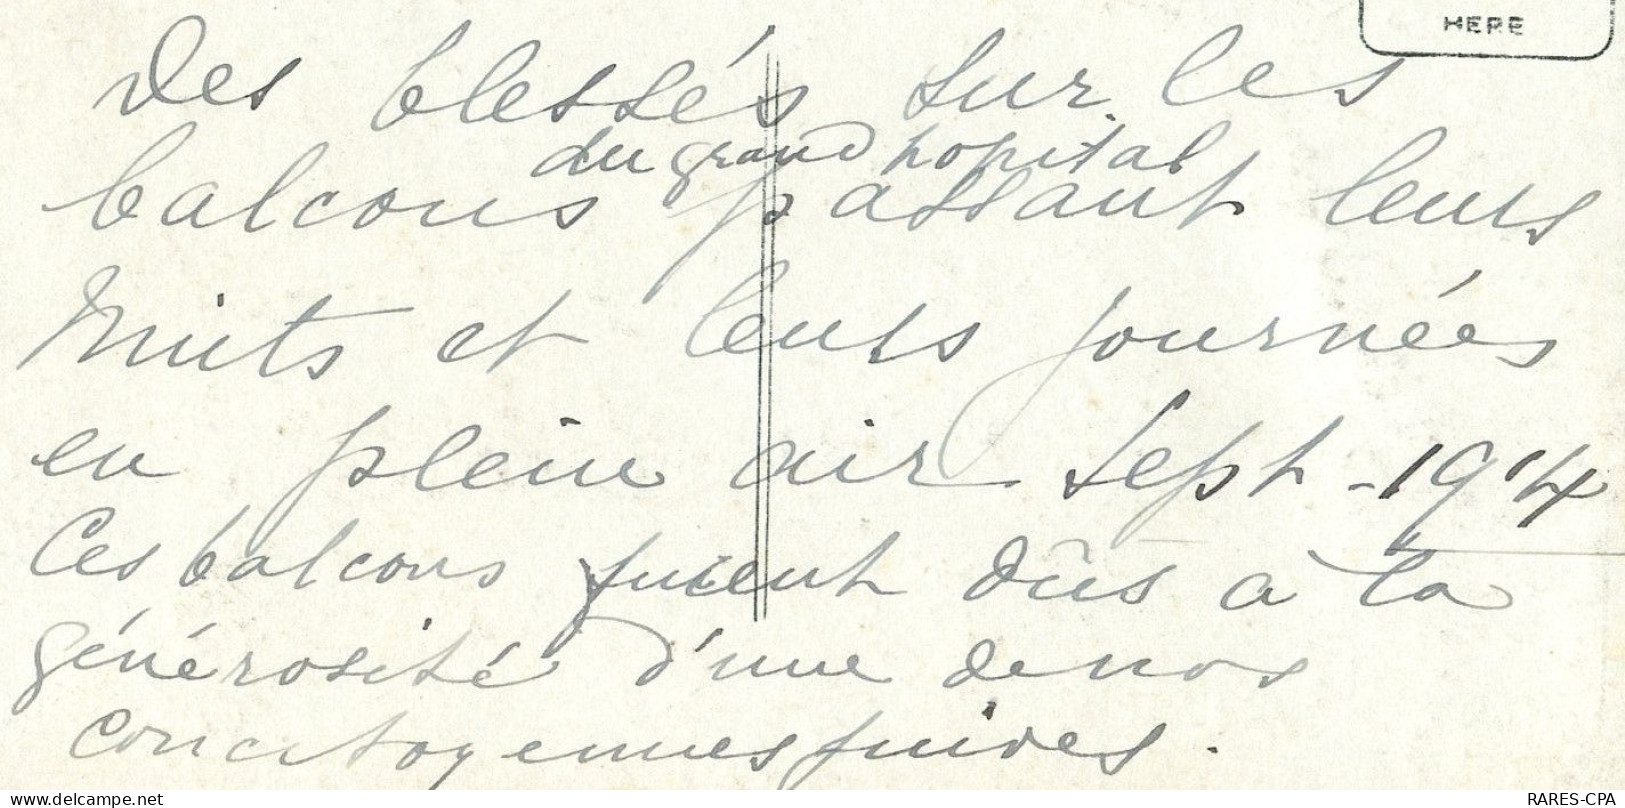 HERE
Des blessés sur les
du grand hopital
balcons passant leurs
Nuits et leurs journées
en plein air Sept - 1914
Ces balcons furent dûs a la
générosité d'une de nos
concitoyennes juives.
RARES-CPA